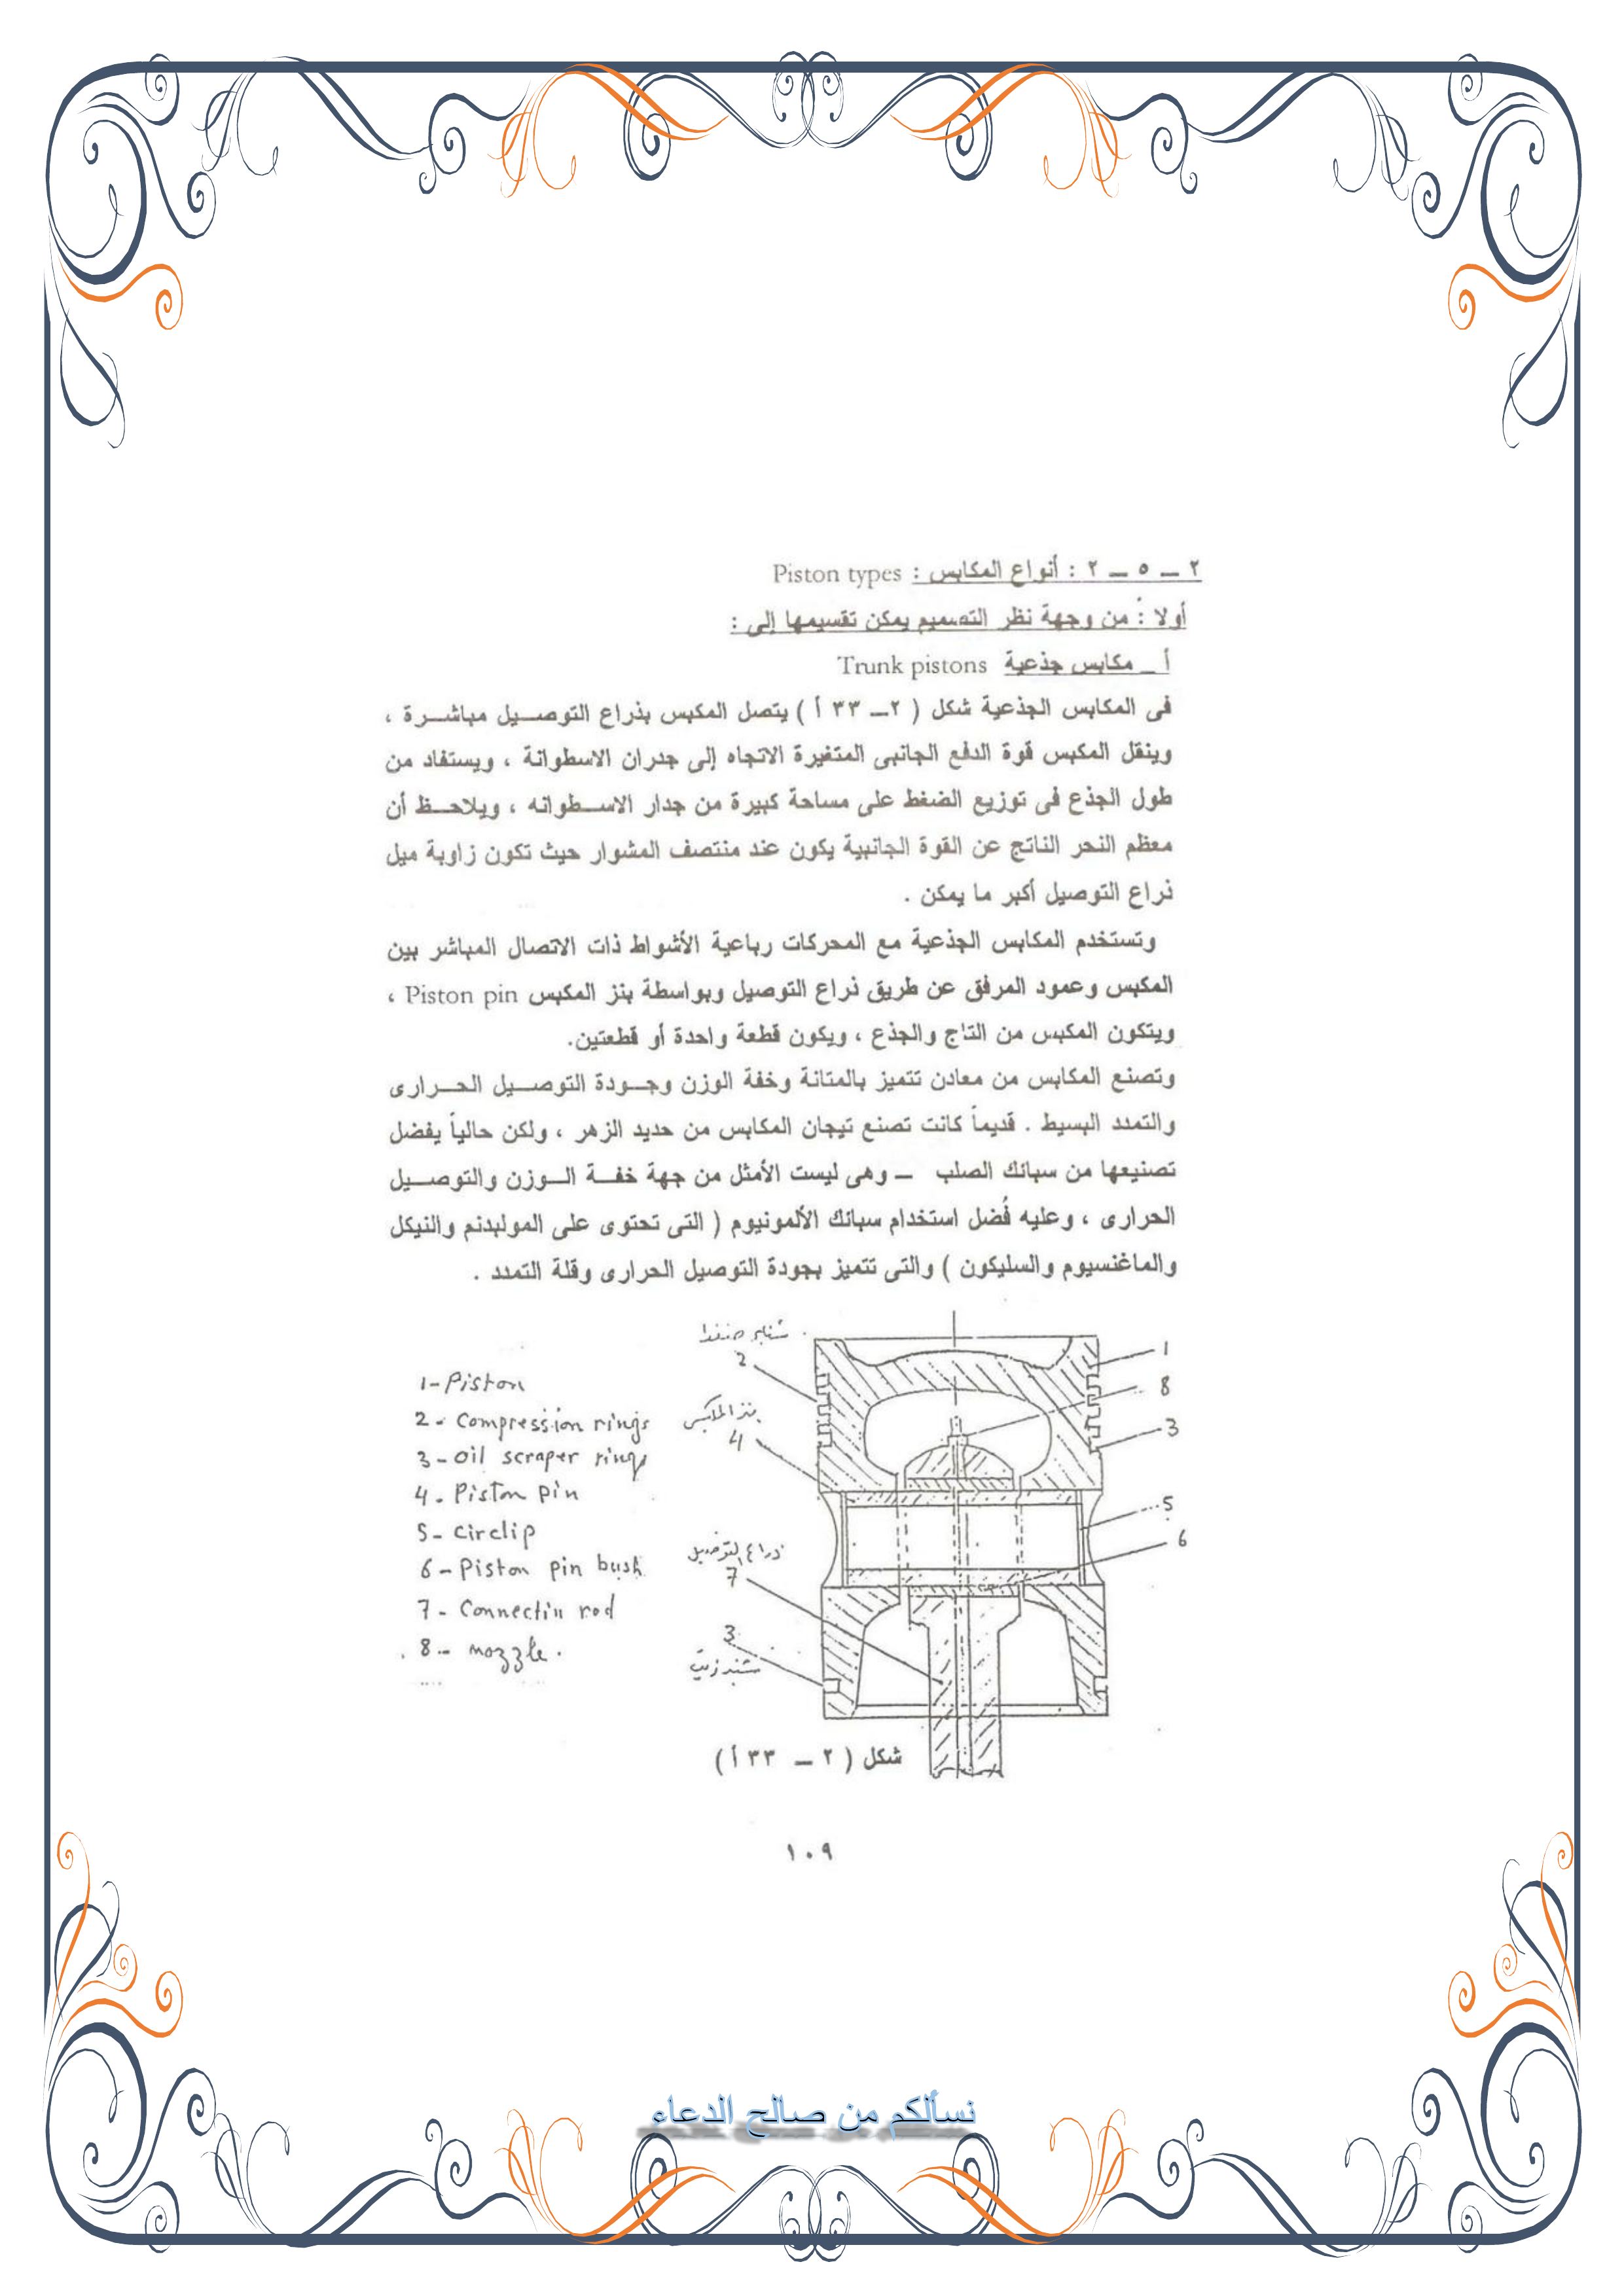 ٢ ــ ٥ ــ ٢ : أنواع المكابس : Piston types
أولاً : من وجهة نظر التصميم يمكن تقسيمها إلى :
أ _ مكابس جذعية Trunk pistons
فى المكابس الجذعية شكل ( ٢ــ ٣٣ أ ) يتصل المكبس بذراع التوصــيل مباشــرة ،
وينقل المكبس قوة الدفع الجانبى المتغيرة الاتجاه إلى جدران الاسطوانة ، ويستفاد من
طول الجذع فى توزيع الضغط على مساحة كبيرة من جدار الاســطوانه ، ويلاحــظ أن
معظم النحر الناتج عن القوة الجانبية يكون عند منتصف المشوار حيث تكون زاوية ميل
ذراع التوصيل أكبر ما يمكن .
وتستخدم المكابس الجذعية مع المحركات رباعية الأشواط ذات الاتصال المباشر بين
المكبس وعمود المرفق عن طريق ذراع التوصيل وبواسطة بنز المكبس Piston pin ،
ويتكون المكبس من التاج والجذع ، ويكون قطعة واحدة أو قطعتين.
وتصنع المكابس من معادن تتميز بالمتانة وخفة الوزن وجــودة التوصــيل الحــرارى
والتمدد البسيط . قديماً كانت تصنع تيجان المكابس من حديد الزهر ، ولكن حالياً يفضل
تصنيعها من سبائك الصلب ــ وهى ليست الأمثل من جهة خفــة الــوزن والتوصــيل
الحرارى ، وعليه فُضل استخدام سبائك الألمونيوم ( التى تحتوى على المولبدنم والنيكل
والماغنسيوم والسليكون ) والتى تتميز بجودة التوصيل الحرارى وقلة التمدد .
شنابر ضغط
2
1
8
بنز المكبس
4
3
5
6
ذراع التوصيل
7
3
شنبر زيت
1-Piston
2- Compression rings
3-oil scraper rings
4- Piston pin
5- circlip
6-Piston pin bush
7- Connectin rod
8- nozzle.
شكل ( ٢ ــ ٣٣ أ )
١٠٩
نسألكم من صالح الدعاء